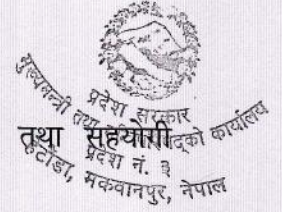 प्रदेश सरकार
मुख्यमन्त्री तथा मन्त्रिपरिषद्को कार्यालय
तथा सहयोगी
प्रदेश नं. ३
हेटौंडा, मकवानपुर, नेपाल